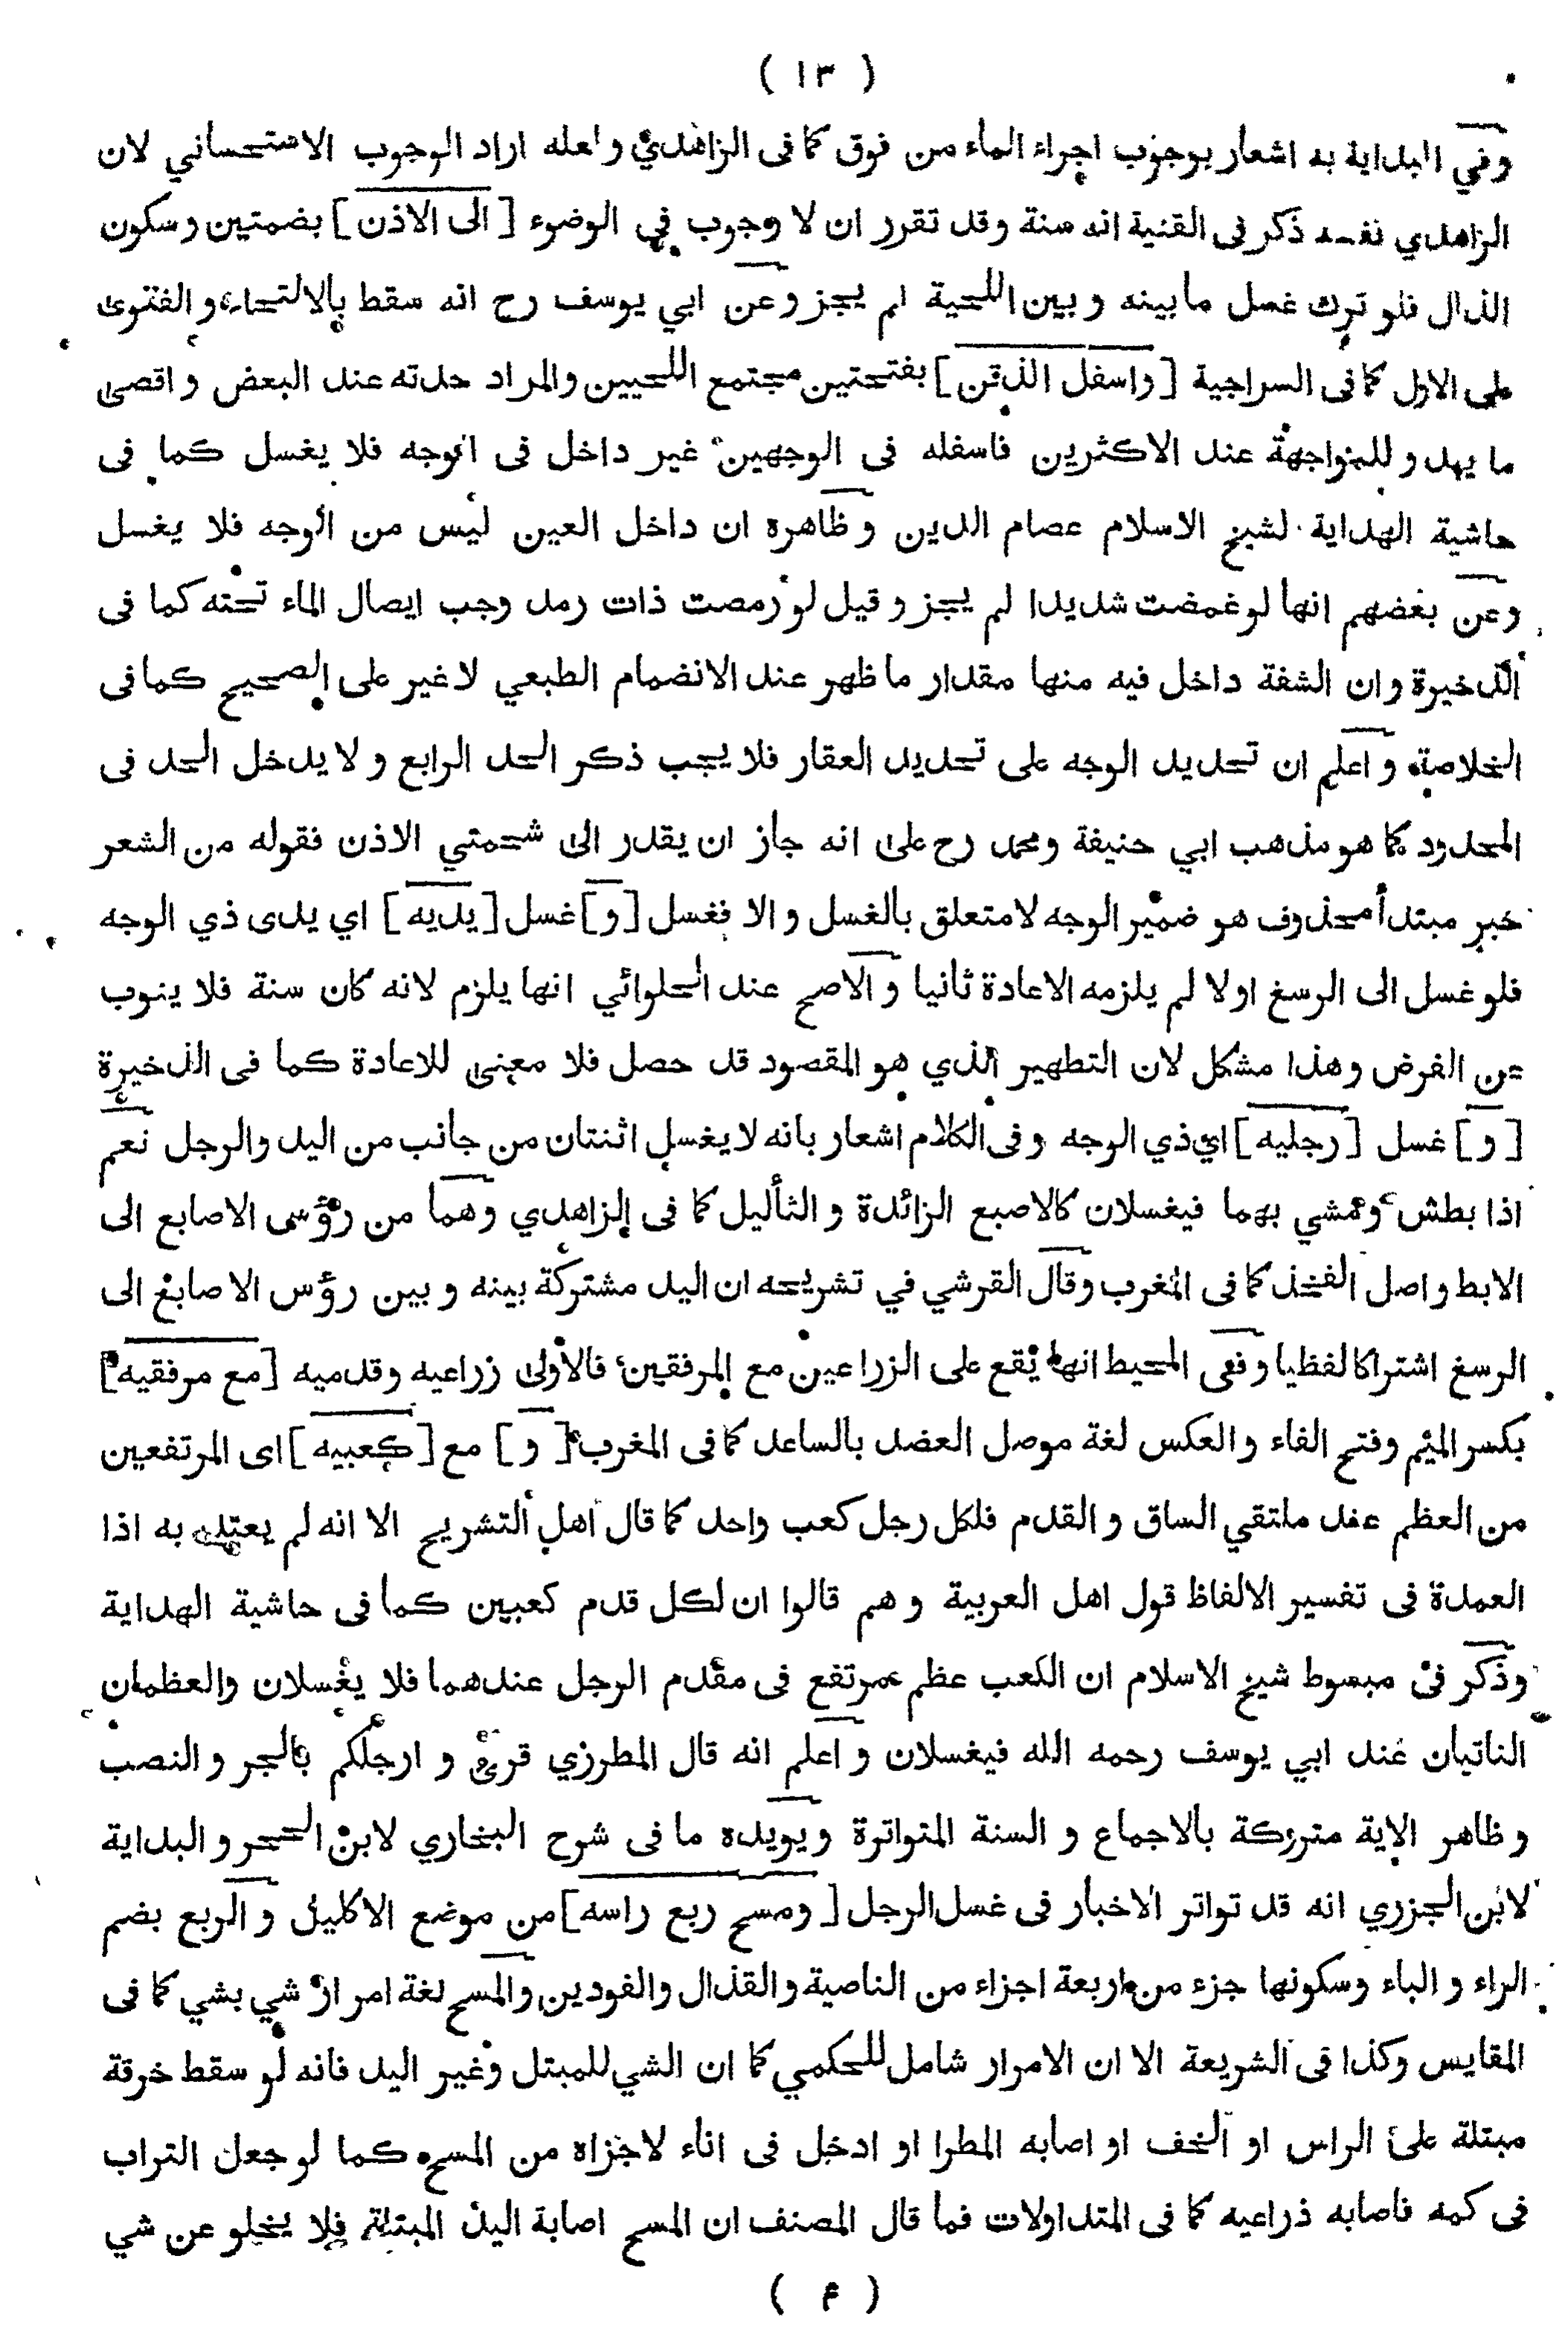 ( ١٣ )
وفي البداية به اشعار بوجوب اجراء الماء من فوق كما فى الزاهدي ولعله اراد الوجوب الاستحساني لان
الزاهدي نفسه ذكر فى القنية انه سنة وقد تقرر ان لا وجوب في الوضوء [ الى الاذن ] بضمتين وسكون
الذال فلو ترك غسل ما بينه و بين اللحية لم يجز وعن ابي يوسف رح انه سقط بالالتحاء و الفتوى
على الاول كما فى السراجية [ واسفل الذقن ] بفتحتين مجتمع اللحيين والمراد حدته عند البعض و اقصى
ما يبدو للمواجهة عند الاكثرين فاسفله فى الوجهين غير داخل فى الوجه فلا يغسل كما فى
حاشية الهداية لشيخ الاسلام عصام الدين و ظاهره ان داخل العين ليس من الوجه فلا يغسل
وعن بعضهم انها لو غمضت شديدا لم يجز و قيل لو رمصت ذات رمد وجب ايصال الماء تحته كما فى
الذخيرة وان الشفة داخل فيه منها مقدار ما ظهر عند الانضمام الطبعي لا غير على الصحيح كما فى
الخلاصة و اعلم ان تحديد الوجه على تحديد العقار فلا يجب ذكر الحد الرابع و لا يدخل الحد فى
المحدود كما هو مذهب ابي حنيفة ومحمد رح على انه جاز ان يقدر الى شحمتي الاذن فقوله من الشعر
خبر مبتدأ محذوف هو ضمير الوجه لا متعلق بالغسل و الا فغسل [ و ] غسل [ يديه ] اي يدى ذي الوجه
فلو غسل الى الرسغ اولا لم يلزمه الاعادة ثانيا و الاصح عند الحلوائي انها يلزم لانه كان سنة فلا ينوب
عن الفرض وهذا مشكل لان التطهير الذي هو المقصود قد حصل فلا معنى للاعادة كما فى الذخيرة
[ و ] غسل [ رجليه ] اي ذي الوجه وفى الكلام اشعار بانه لا يغسل اثنتان من جانب من اليد والرجل نعم
اذا بطش و مشي بهما فيغسلان كالاصبع الزائدة و الثأليل كما فى الزاهدي وهما من رؤس الاصابع الى
الابط و اصل الفخذ كما فى المغرب وقال القرشي في تشريحه ان اليد مشتركة بينه و بين رؤس الاصابع الى
الرسغ اشتراكا لفظيا وفى المحيط انها يقع على الزراعين مع المرفقين فالاولى زراعيه وقدميه [ مع مرفقيه ]
بكسر الميم وفتح الفاء و العكس لغة موصل العضد بالساعد كما فى المغرب [ و ] مع [ كعبيه ] اى المرتفعين
من العظم عند ملتقي الساق و القدم فلكل رجل كعب واحد كما قال اهل التشريح الا انه لم يعتد به اذا
العمدة فى تفسير الالفاظ قول اهل العربية و هم قالوا ان لكل قدم كعبين كما فى حاشية الهداية
وذكر فى مبسوط شيخ الاسلام ان الكعب عظم مرتفع فى مقدم الرجل عندهما فلا يغسلان والعظمان
الناتيان عند ابي يوسف رحمه الله فيغسلان و اعلم انه قال المطرزي قرئ و ارجلكم بالجر و النصب
و ظاهر الاية متروكة بالاجماع و السنة المتواترة و يويده ما فى شرح البخاري لابن الحجر و البداية
لابن الجزري انه قد تواتر الاخبار فى غسل الرجل [ ومسح ربع راسه ] من موضع الاكليل و الربع بضم
الراء و الباء وسكونها جزء من اربعة اجزاء من الناصية والقذال والفودين والمسح لغة امرار شي بشي كما فى
المقايس وكذا فى الشريعة الا ان الامرار شامل للحكمي كما ان الشي للمبتل وغير اليد فانه لو سقط خرقة
مبتلة على الراس او الخف او اصابه المطرا و ادخل فى اناء لاجزاه من المسح كما لو جعل التراب
فى كمه فاصابه ذراعيه كما فى المتداولات فما قال المصنف ان المسح اصابة اليد المبتلة فلا يخلو عن شي
( ۴ )